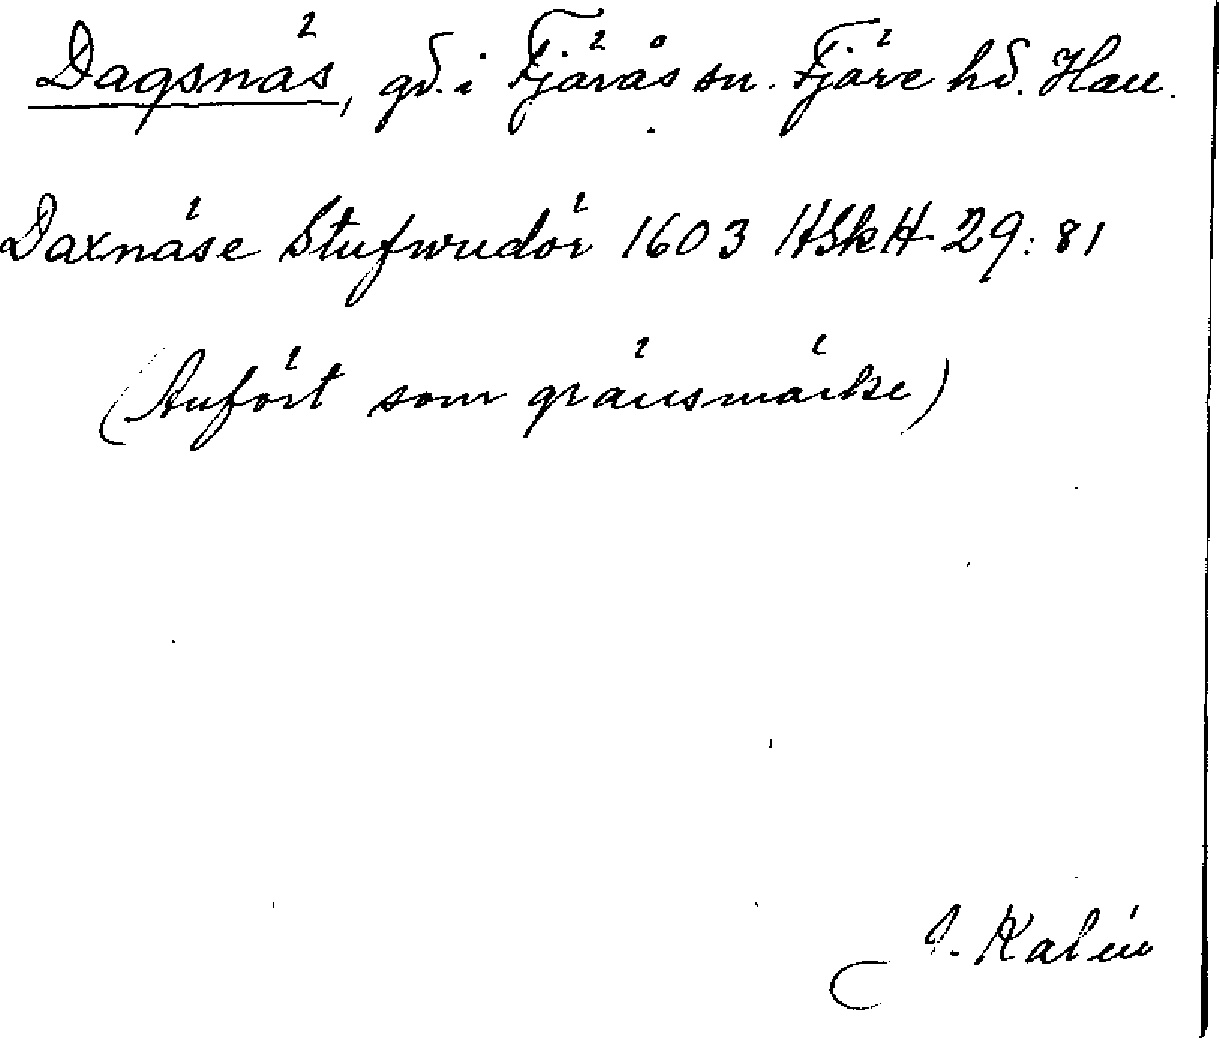 Dagsnäs, gd. i Fjärås sn. Fjäre hd. Hall.
Daxnäse Stufwudör 1603 HSkH 29:81
(Anfört som gränsmärke)
J. Kalén